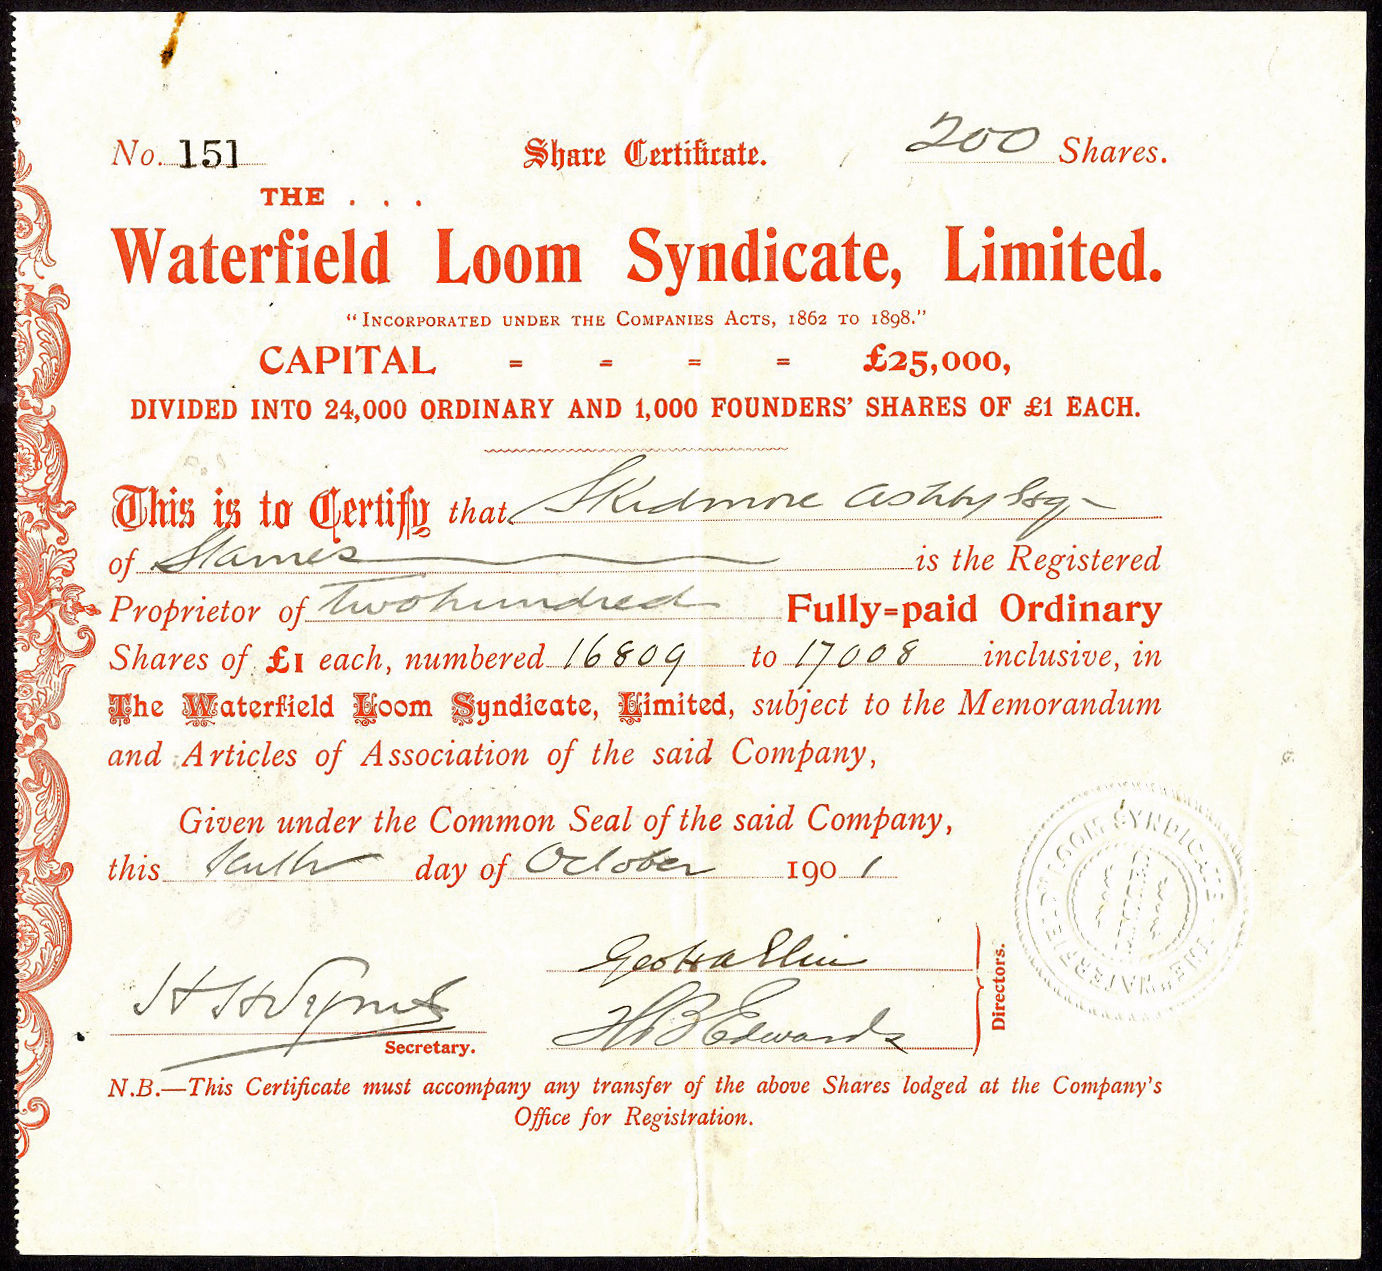 No. 151 Share Certificate. 200 Shares.
THE . . .
Waterfield Loom Syndicate, Limited.
"Incorporated under the Companies Acts, 1862 to 1898."
CAPITAL = = = = £25,000,
DIVIDED INTO 24,000 ORDINARY AND 1,000 FOUNDERS' SHARES OF £1 EACH.
This is to Certify that Skidmore Ashby Esq
of Staines is the Registered
Proprietor of Two hundred Fully=paid Ordinary
Shares of £1 each, numbered 16809 to 17008 inclusive, in
The Waterfield Loom Syndicate, Limited, subject to the Memorandum
and Articles of Association of the said Company,
Given under the Common Seal of the said Company,
this tenth day of October 1901
THE WATERFIELD LOOM SYNDICATE
Geo H
H B Edwards
Directors.
Secretary.
N.B.—This Certificate must accompany any transfer of the above Shares lodged at the Company's
Office for Registration.